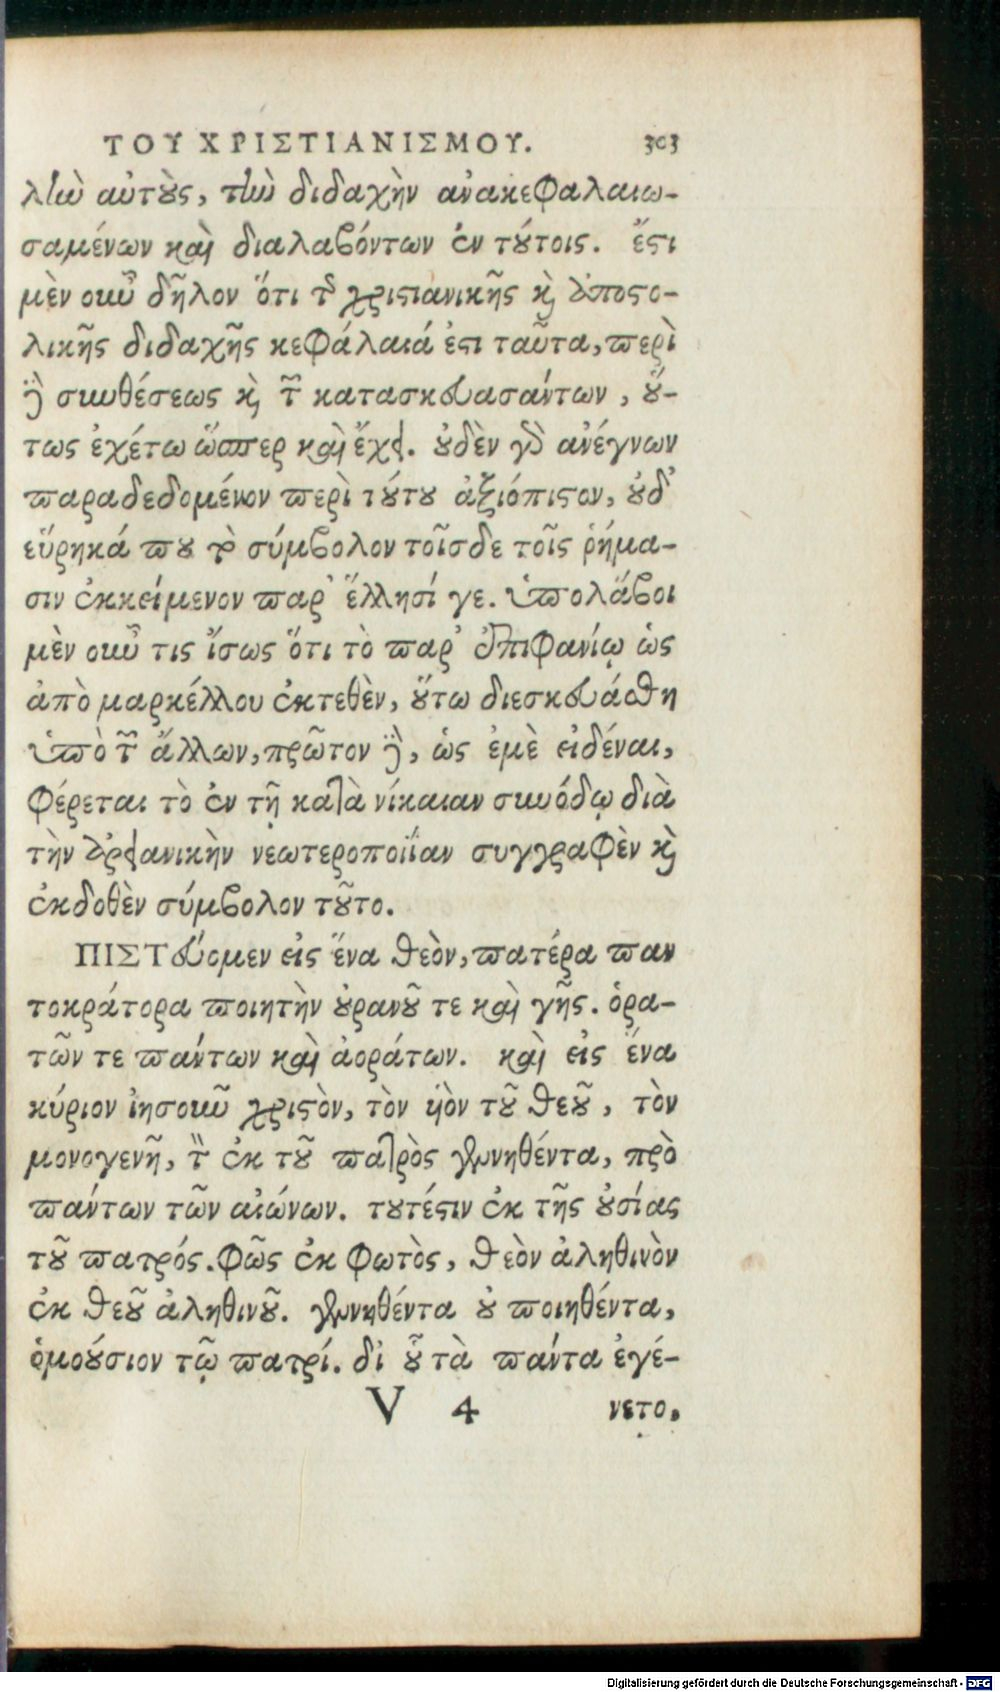 ΤΟΥ ΧΡΙΣΤΙΑΝΙΣΜΟΥ. 303
λὴν αὐτοὺς, τὴν διδαχὴν ἀνακεφαλαιω-
σαμένων καὶ διαλαβόντων ἐν τούτοις. ἔστι
μὲν οὖν δῆλον ὅτι τῆς χριστιανικῆς καὶ ἀποστο-
λικῆς διδαχῆς κεφάλαιά ἐστι ταῦτα, περὶ
δὲ συνθέσεως καὶ τῶν κατασκευασάντων, οὕ-
τως ἐχέτω ὥσπερ καὶ ἔχει. οὐδὲν γὰρ ἀνέγνων
παραδεδομένον περὶ τούτου ἀξιόπιστον, οὐδ'
εὕρηκά που τὸ σύμβολον τοῖσδε τοῖς ῥήμα-
σιν ἐκκείμενον παρ' ἕλλησί γε. ὑπολάβοι
μὲν οὖν τις ἴσως ὅτι τὸ παρ' ἐπιφανίῳ ὡς
ἀπὸ μαρκέλλου ἐκτεθὲν, οὕτω διεσκευάσθη
ὑπὸ τῶν ἄλλων, πρῶτον δὲ, ὡς ἐμὲ εἰδέναι,
φέρεται τὸ ἐν τῇ κατὰ νίκαιαν συνόδῳ διὰ
τὴν ἀρειανικὴν νεωτεροποιΐαν συγγραφὲν καὶ
ἐκδοθὲν σύμβολον τοῦτο.
ΠΙΣΤεύομεν εἰς ἕνα θεὸν, πατέρα παν
τοκράτορα ποιητὴν οὐρανοῦ τε καὶ γῆς. ὁρα-
τῶν τε πάντων καὶ ἀοράτων. καὶ εἰς ἕνα
κύριον ἰησοῦν χριστὸν, τὸν ὑὸν τοῦ θεοῦ, τὸν
μονογενῆ, τὸν ἐκ τοῦ πατρὸς γεννηθέντα, πρὸ
πάντων τῶν αἰώνων. τουτέστιν ἐκ τῆς οὐσίας
τοῦ πατρός. φῶς ἐκ φωτὸς, θεὸν ἀληθινὸν
ἐκ θεοῦ ἀληθινοῦ. γεννηθέντα οὐ ποιηθέντα,
ὁμούσιον τῷ πατρί. δι οὗ τὰ πάντα ἐγέ-
V 4 νετο,
Digitalisierung gefördert durch die Deutsche Forschungsgemeinschaft - DFG